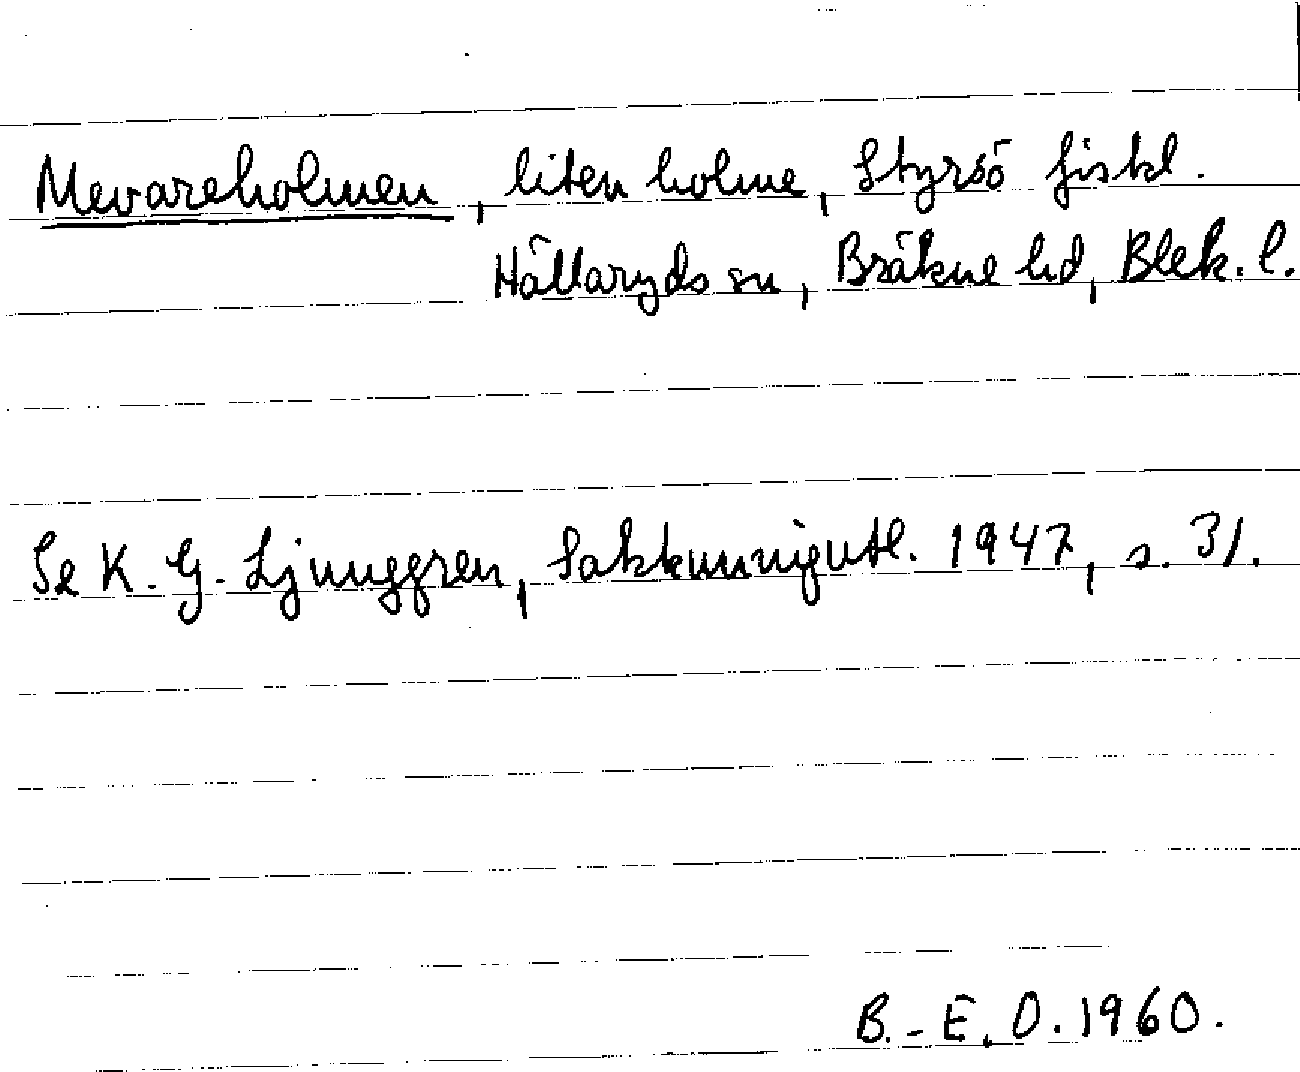 Mevareholmen, liten holme, Styrsö fiskl.
Hällaryds sn, Bräkne hd, Blek. l.
Se K. G. Ljunggren, Sakkunnigutl. 1947, s. 31.
B.-E. O. 1960.